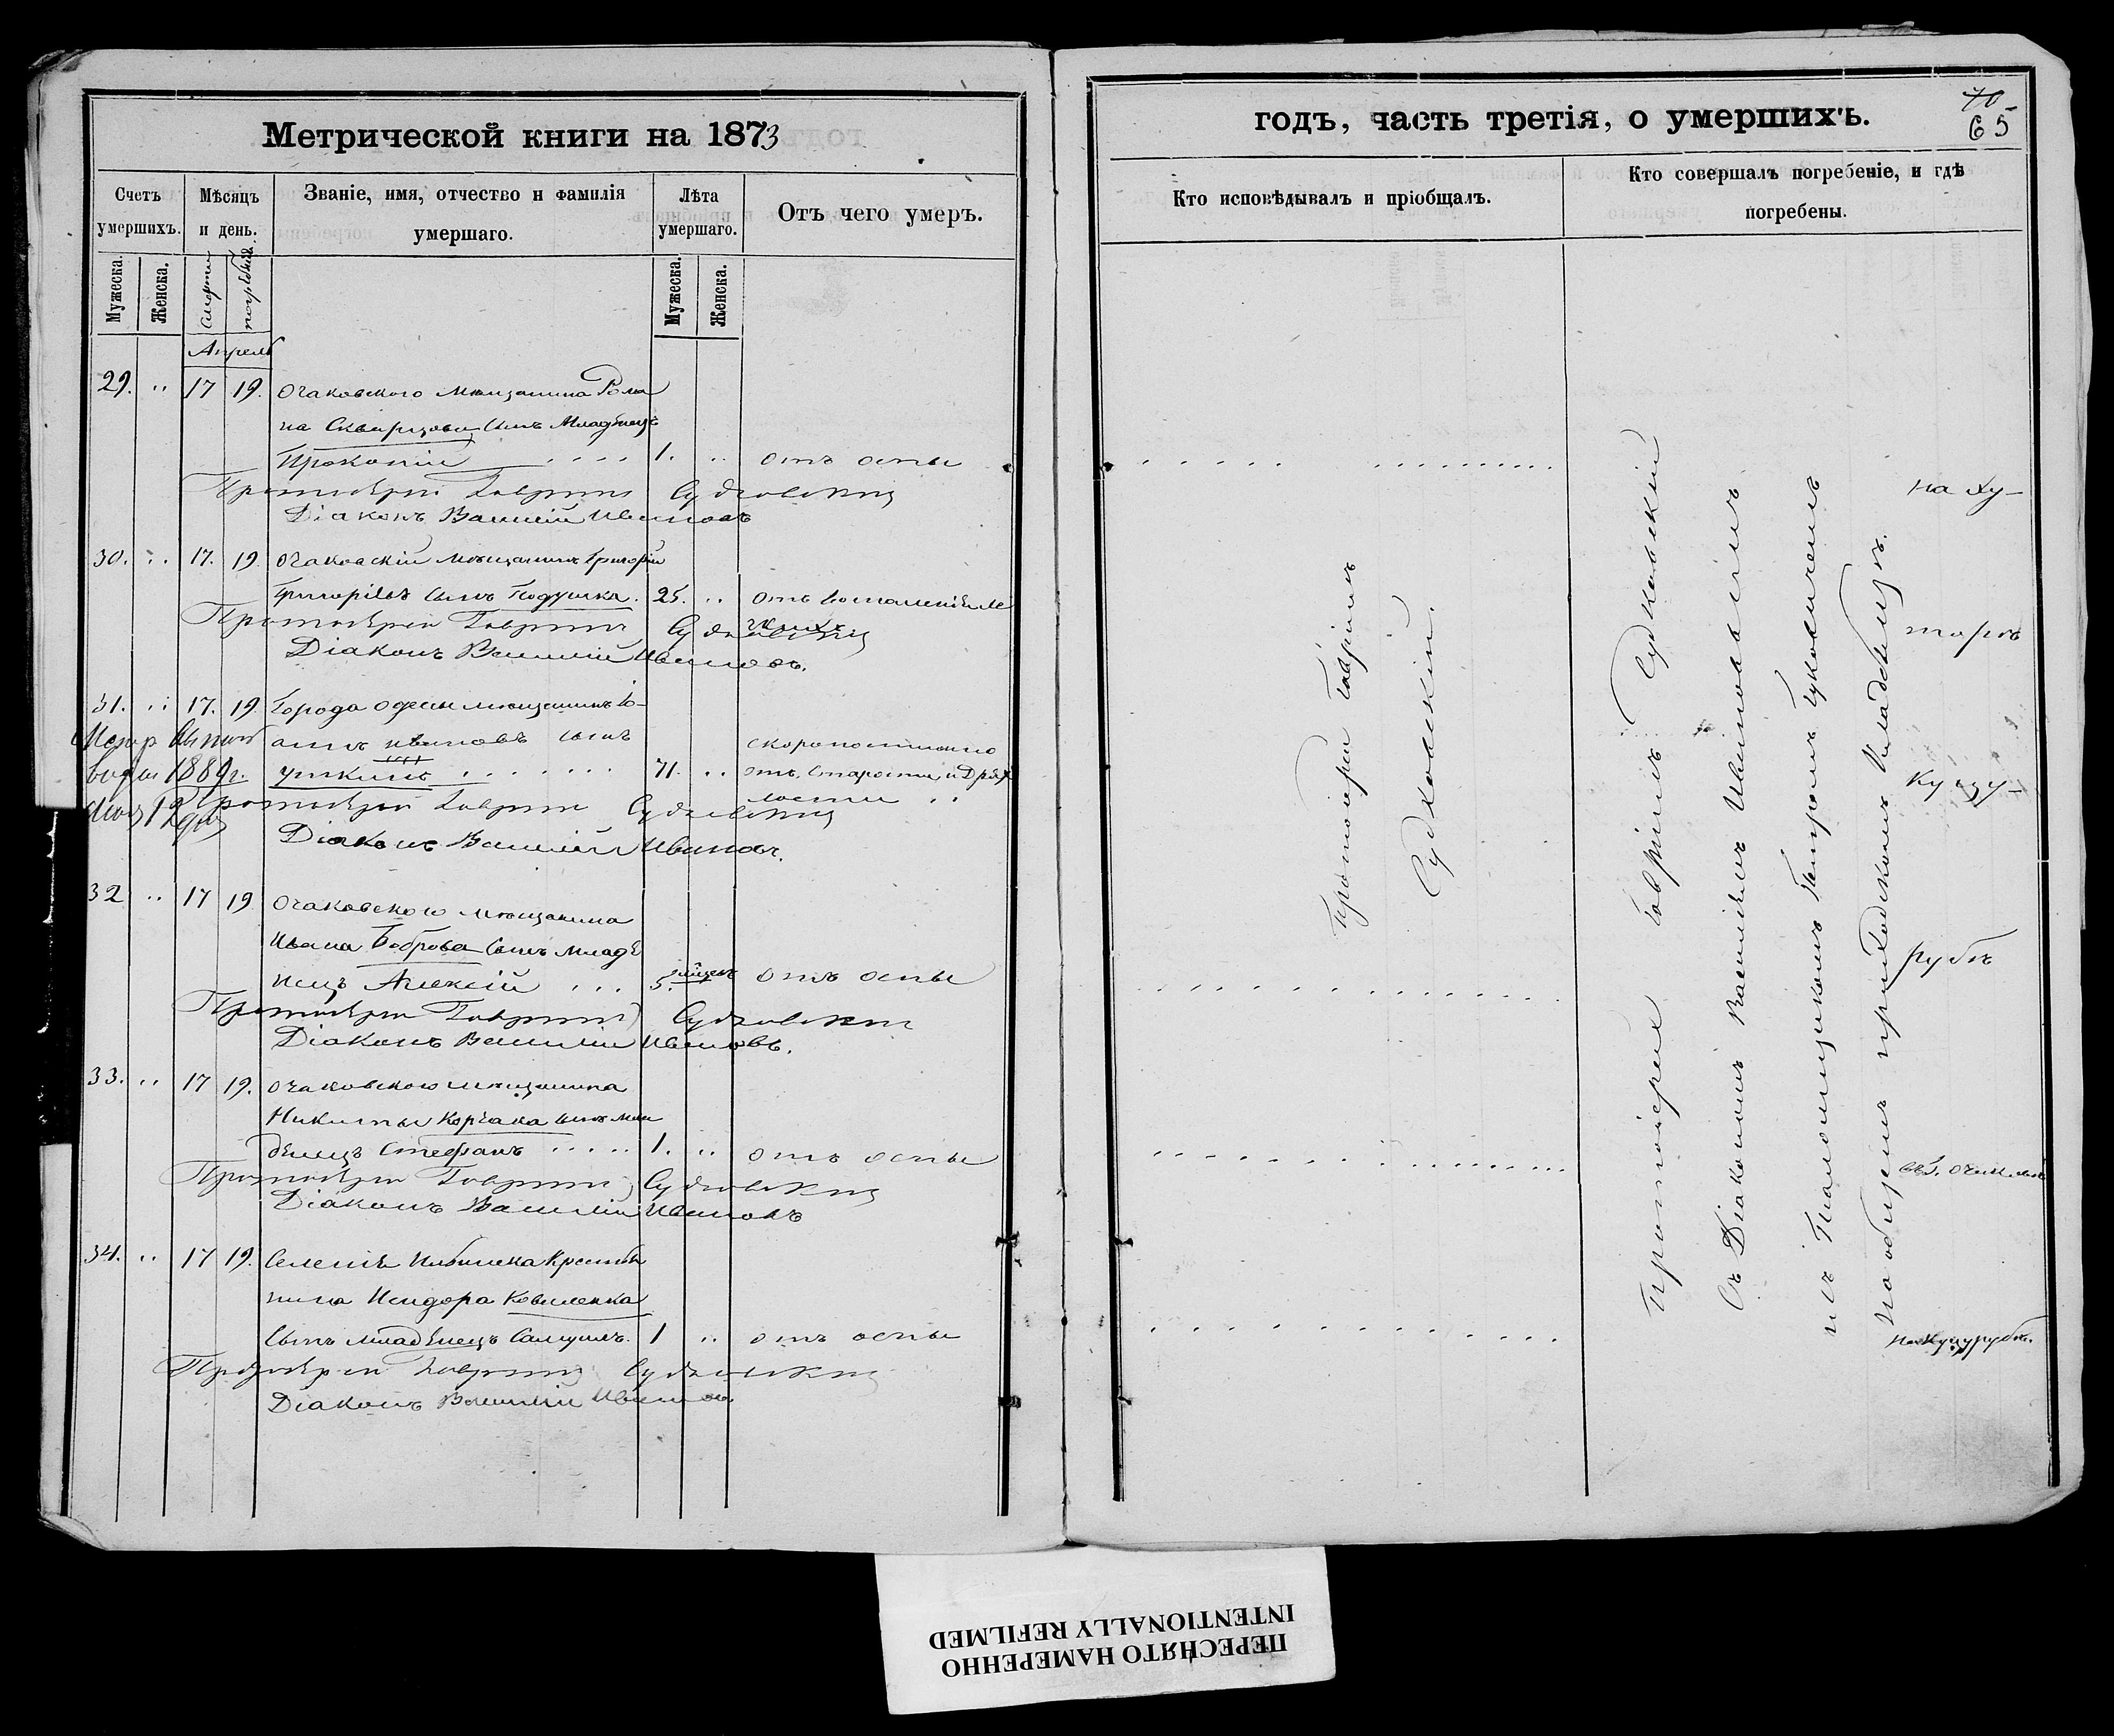 Метрической книги на 1873
Счетъ умершихъ.
Мѣсяцъ и день.
Званіе, имя, отчество и фамилія умершаго.
Лѣта умершаго.
Отъ чего умеръ.
Мужеска.
Женска.
Смерти
погребенія
Мужеска.
Женска.
Апрель
29. 17 19. Очаковского мѣщанина Рома
на Скварцова сынъ младенецъ
Прокопій 1. отъ оспы
Протоіерей Гавріилъ Судковскій
Діаконъ Василій Ивановъ
30. 17. 19. Очаковскій мѣщанинъ Григорій
Григоріевъ сынъ Подушка. 25. отъ воспаленія ле
гкихъ
Протоіерей Гавріилъ Судковскій
Діаконъ Василій Ивановъ.
31. 17. 19. Города Одессы мѣщанинъ
Ивановъ сынъ
скоропостижно
71. отъ старости и дрях
лости
1889 г.
Протоіерей Гавріилъ Судковскій
Діаконъ Василій Ивановъ.
32 17 19 Очаковского мѣщанина
Ивана Боброва сынъ младе
нецъ Алексій 5. мѣсец. отъ оспы
Протоіерей Гавріилъ Судковскій
Діаконъ Василій Ивановъ.
33. 17 19. Очаковского мѣщанина
Никиты Корчака сынъ мла
денецъ Стефанъ 1. отъ оспы
Протоіерей Гавріилъ Судковскій
Діаконъ Василій Ивановъ
34. 17 19. Селенія крестья
нина Исидора Коваленка
сынъ младенецъ Самуилъ. 1 отъ оспы
Протоіерей Гавріилъ Судковскій
Діаконъ Василій Ивановъ.
годъ, часть третія, о умершихъ.
70
65
Кто исповѣдывалъ и пріобщалъ.
Кто совершалъ погребеніе, и гдѣ погребены.
Протоіерей Гавріилъ
Судковскій.
Протоіерей Гавріилъ Судковскій
Съ Діакономъ Василіемъ Ивановымъ
и Псаломщикомъ Петромъ
на общемъ приходскомъ кладбищѣ.
на ху-
торѣ
Куцу-
рубѣ
на Куцурубѣ.
ПЕРЕСНЯТО НАМЕРЕННО
INTENTIONALLY REFILMED